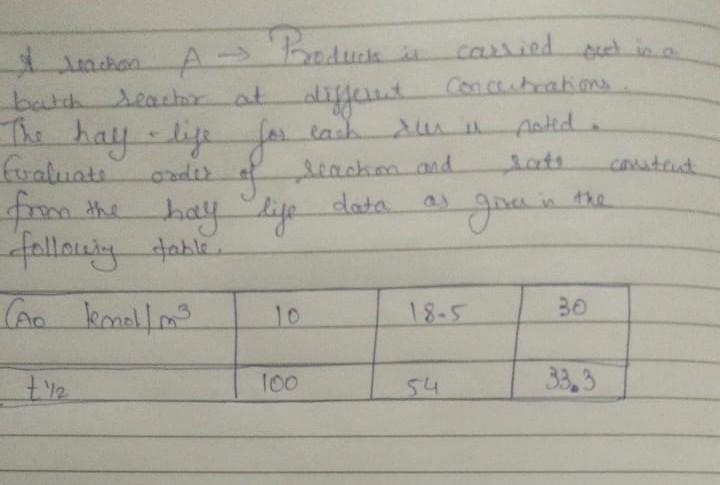 A reaction A → Products is carried out in a
batch reactor at different concentrations.
The half-life for each run is noted.
Evaluate order of reaction and rate constant
from the half life data as given in the
following table.
CA0 kmol/m³ 10 18.5 30
t½ 100 54 33.3